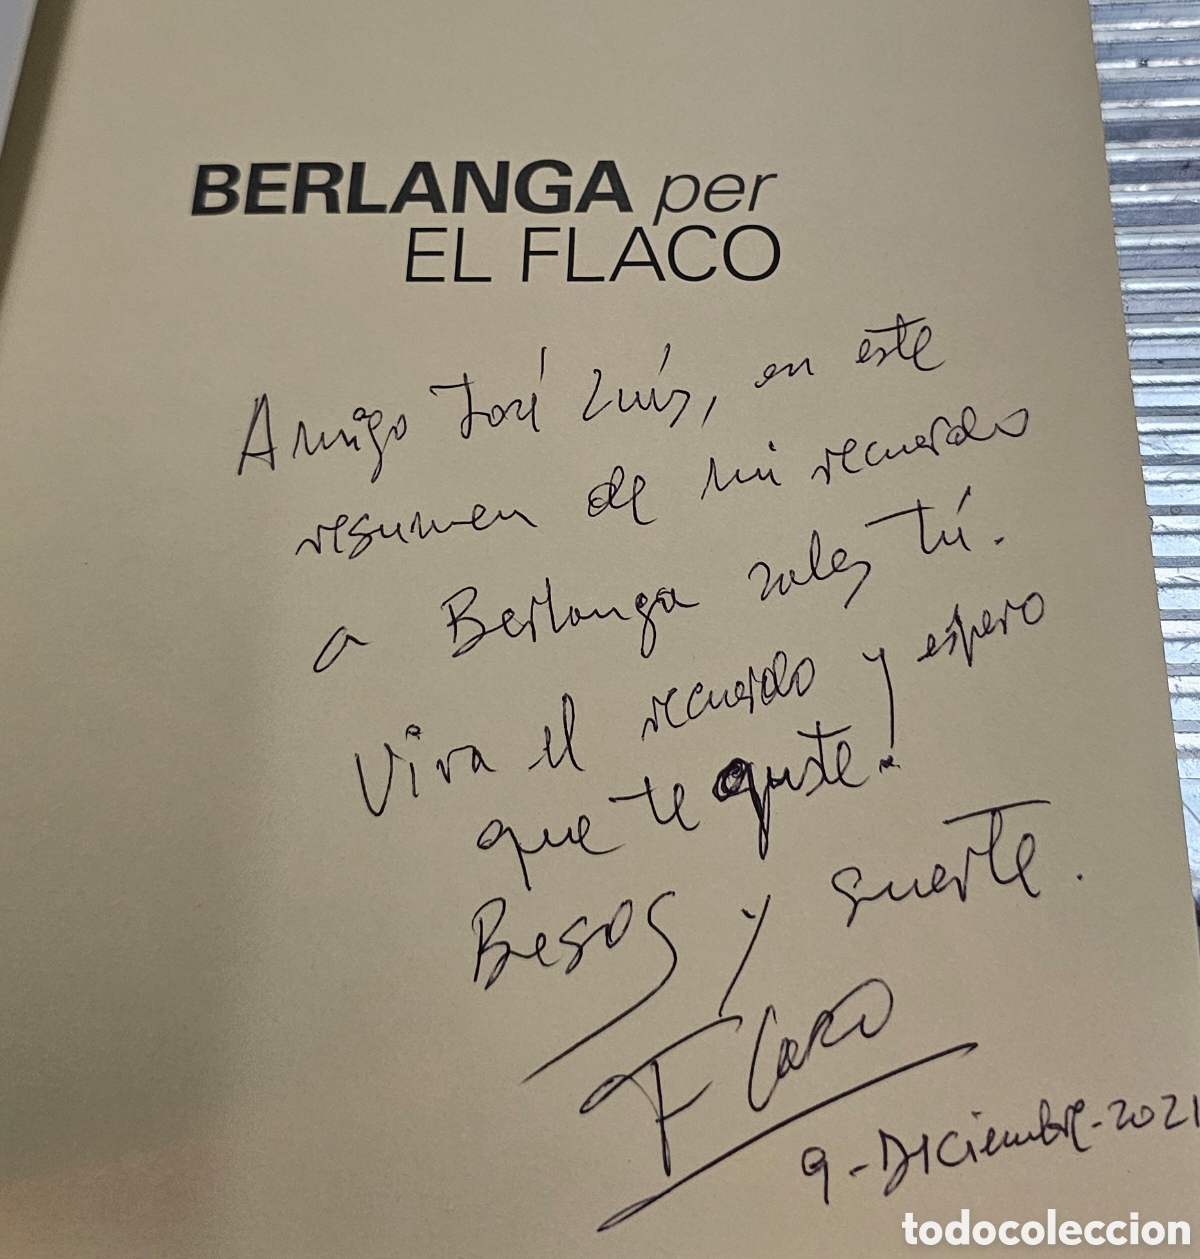 BERLANGA per
EL FLACO
Amigo José Luís, en este
resumen de mi recuerdo
a Berlanga sales tú.
Viva el recuerdo y espero
que te guste.
Besos y suerte.
Flaco
9-Diciembre-2021
todocoleccion